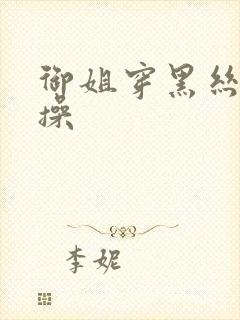 御姐穿黑丝
操
李妮